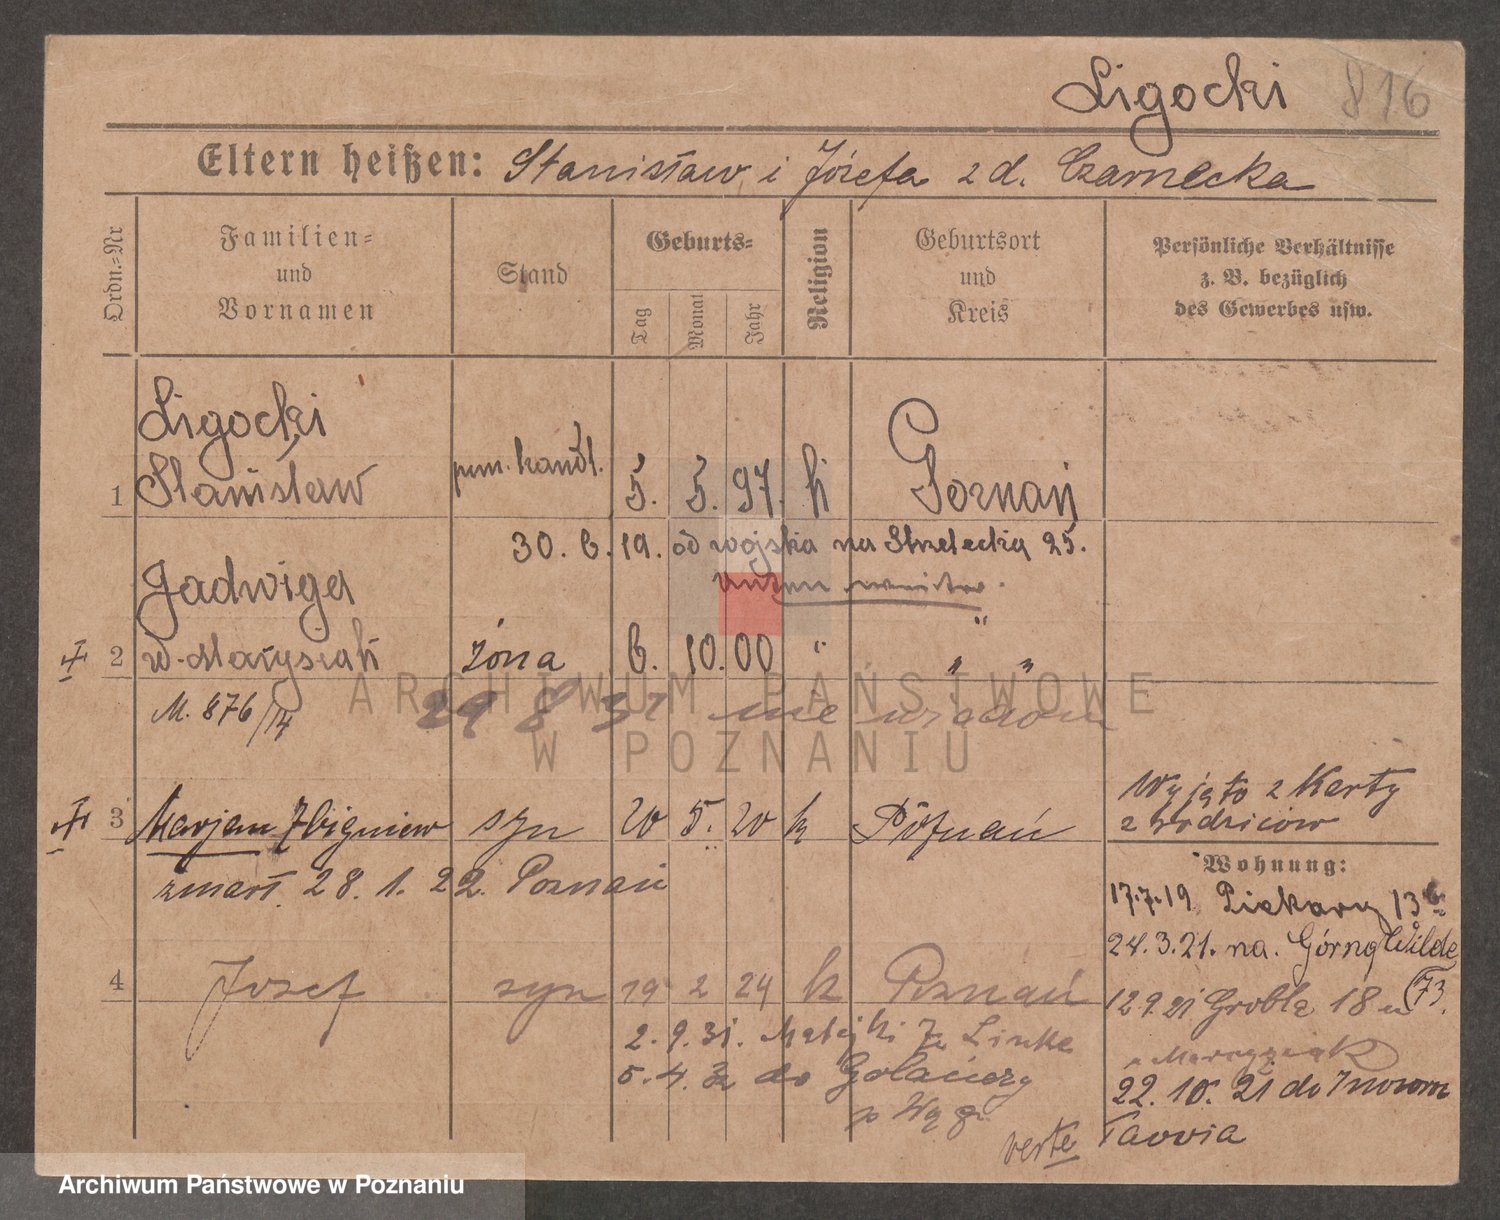 Ligocki 816
Eltern heißen: Stanisław i Józefa z d. Czarnecka
Ordn.=Nr
Familien=
und
Vornamen
Stand
Geburts=
Tag
Monat
Jahr
Religion
Geburtsort
und
Kreis
Persönliche Verhältnisse
z. B. bezüglich
des Gewerbes usw.
Ligocki
1 Stanisław pom. handl. 5. 5. 97. k Poznań
30. 6. 19. od wojska na Strzelecką 25.
Jadwiga
2 ż. Matysiak żona 6. 10. 00 " " "
M. 876/14 29 8 31 nie
3 Marjan Zbigniew syn 20 5. 20 k Poznań
Wyjęto z Karty
z rodziców
zmarł. 28. 1. 22. Poznań
Wohnung:
17.7.19 Piekary 13
24.3.21. na. Górną Wilde
73.
4 Józef syn 19 2 24 k Poznań
12 9 21 Grobla 18 u
2. 9. 31. Matejki
5. 4. 32 do Gołańczy
p Wągr.
22. 10. 21 do Inowro
cławia
verte
ARCHIWUM PAŃSTWOWE
W POZNANIU
Archiwum Państwowe w Poznaniu